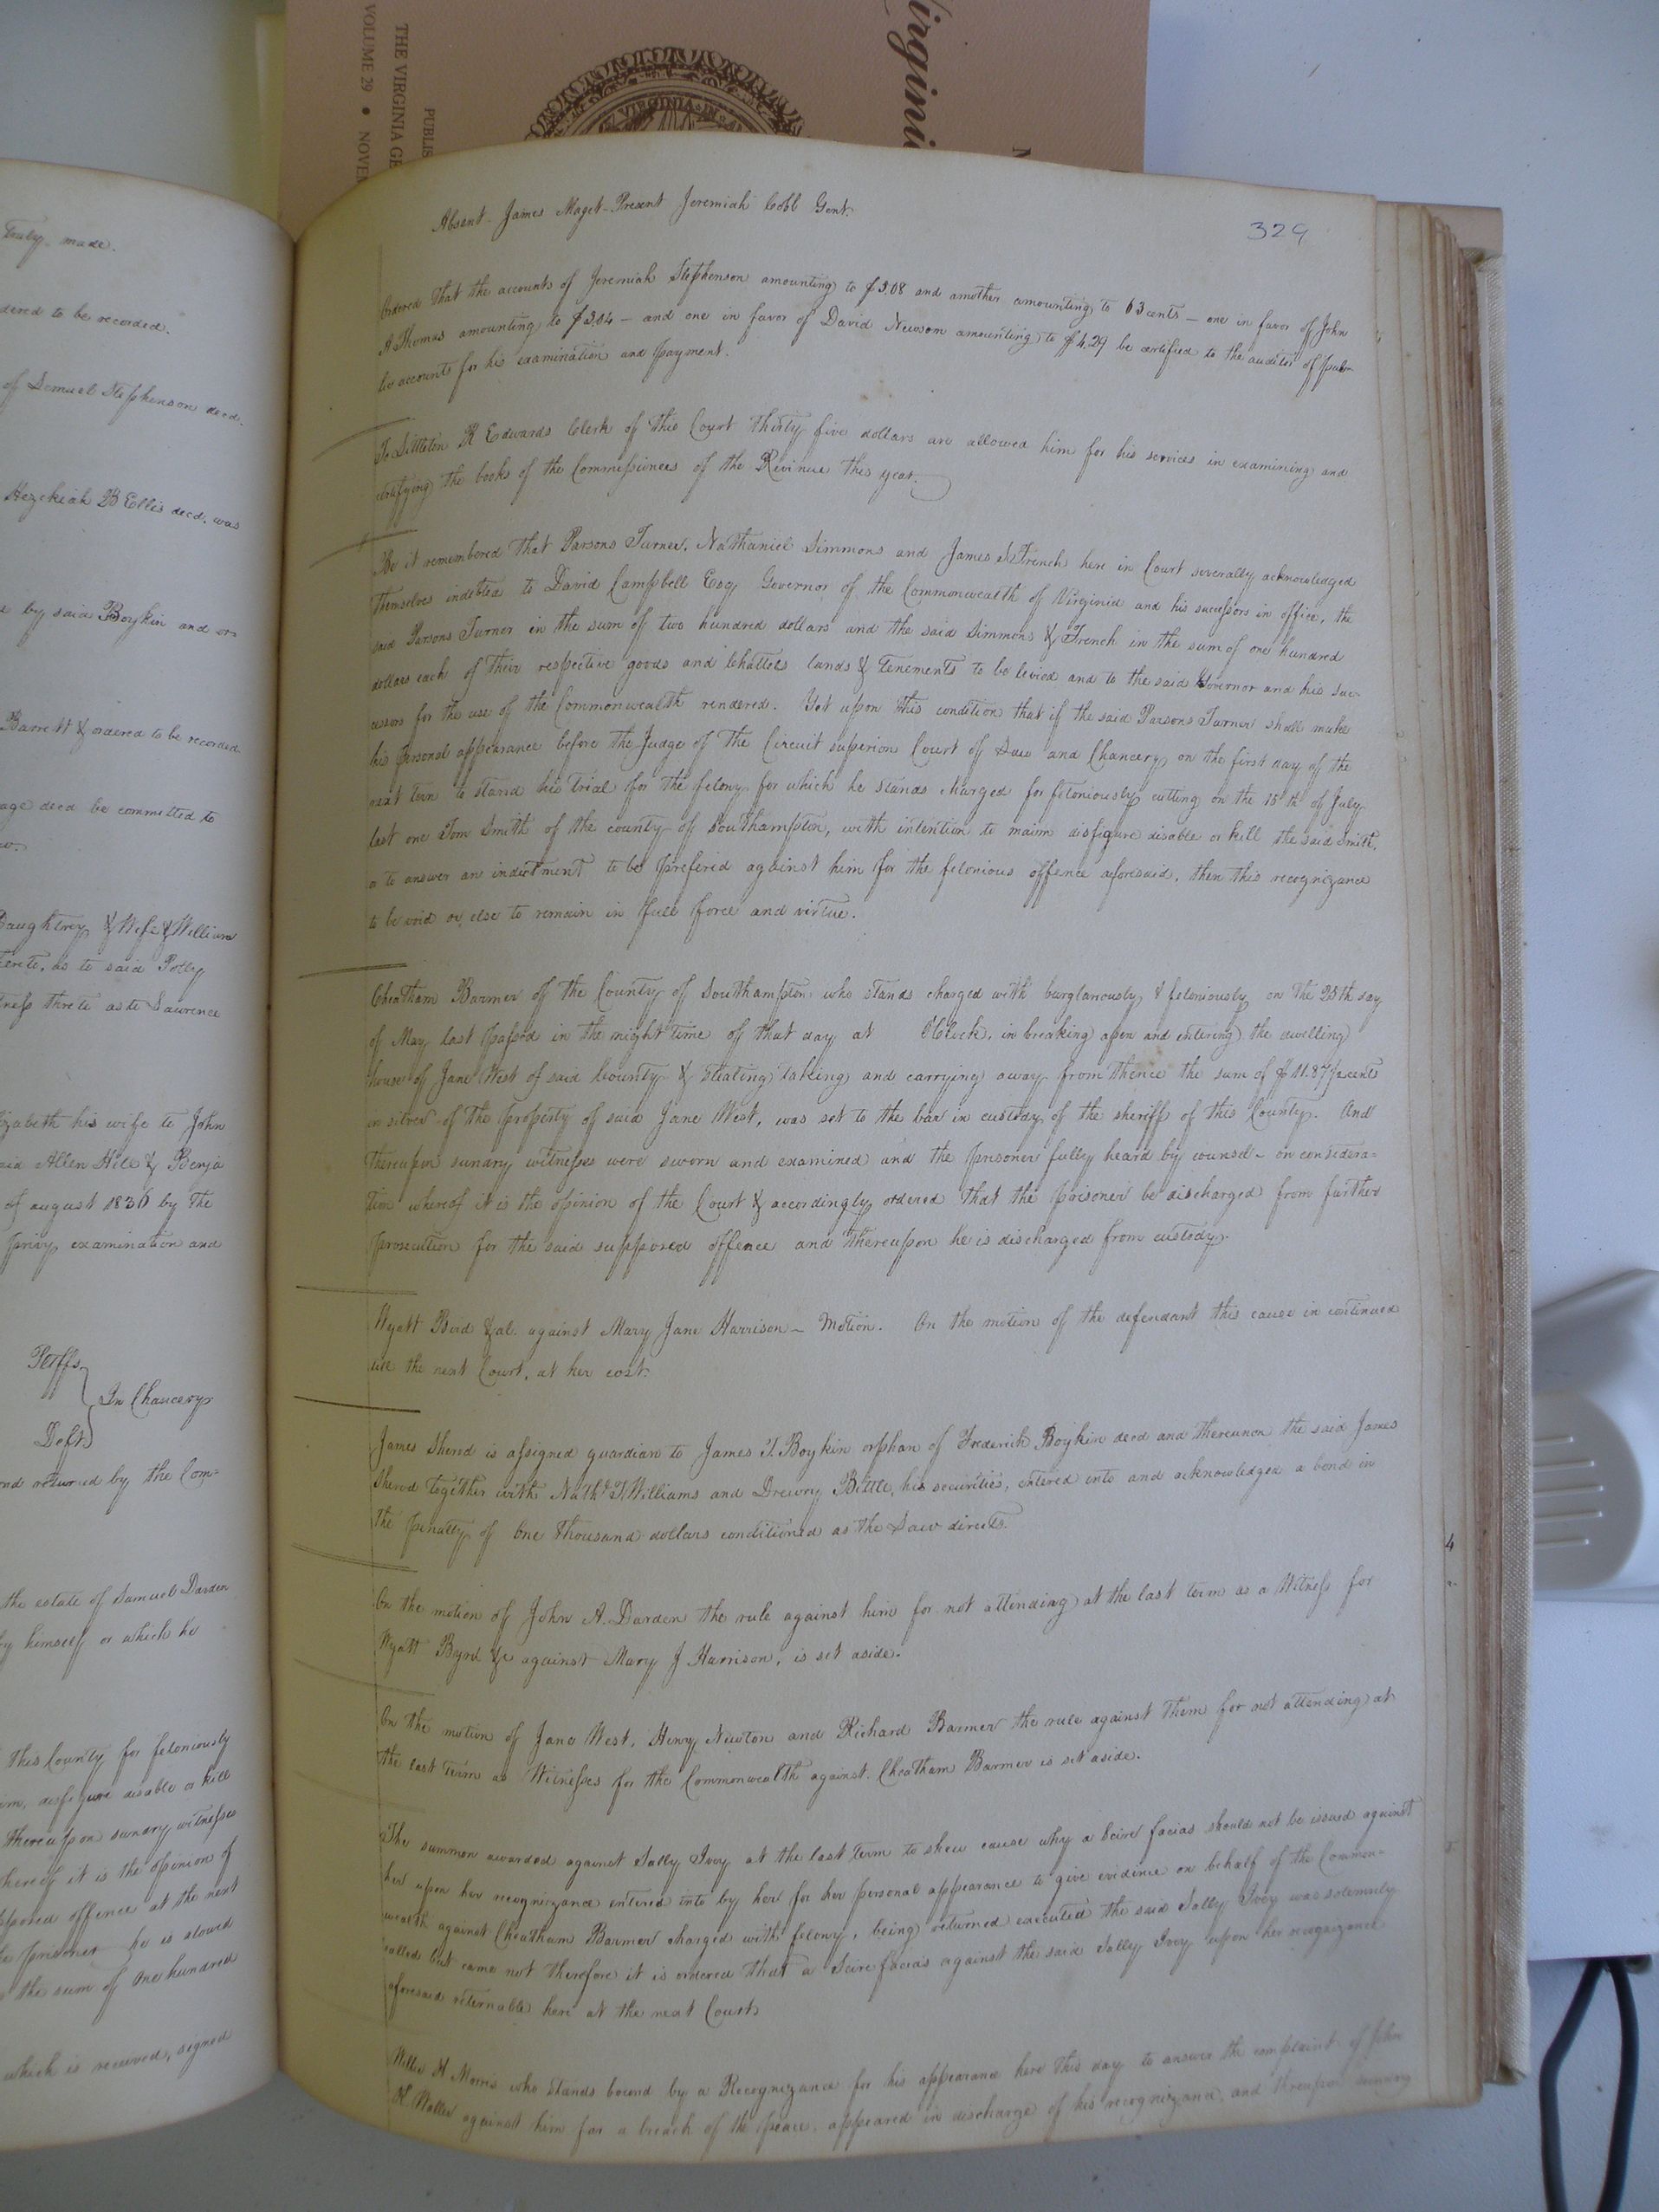 Virgini
PUBLIS
THE VIRGINIA GE
VOLUME 29 • NOVEM
VIRGINIA
329
Truly made.
dered to be recorded.
of Lemuel Stephenson decd.
Hezekiah B Ellis decd. was
by said Boykin and or
Barrett & ordered to be recorded
age decd be committed to
Daughtrey & Wife & William
as to said Polly
as to Lawrence
izabeth his wife to John
aid Allen Hill & Benja
of august 1836 by the
privy examination and
Pltffs
In Chancery
Defts
nd returned by the Com=
the estate of Samuel Darden
by himself or which he
This County for feloniously
im, disfigure disable or kill
thereupon sundry witnesses
hereof it is the opinion of
pposed offence at the next
prisoner he is alowed
the sum of one hundred
which is received, signed
Absent James Maget - Present Jeremiah Cobb Gent.
Ordered that the accounts of Jeremiah Stephenson amounting to $3.08 and another amounting to 63 cents - one in favor of John
A Thomas amounting to $3.04 - and one in favor of David Newsom amounting to $4.29 be certified to the auditor of pub-
lic accounts for his examination and payment.
To Littleton R Edwards Clerk of this Court thirty five dollars are allowed him for his services in examining and
certifying the books of the Commissioners of the Revinue this year.
Be it remembered that Parsons Turner, Nathaniel Simmons and James S French here in Court severally acknowledged
themselves indebted to David Campbell Esq Governor of the Commonwealth of Virginia and his successors in office, the
said Parsons Turner in the sum of two hundred dollars and the said Simmons & French in the sum of one hundred
dollars each of their respective goods and Chattels lands & tenements to be levied and to the said Governor and his suc-
cessors for the use of the Commonwealth rendered. Yet upon this condition that if the said Parsons Turner shall make
his personal appearance before the Judge of the Circuit superior Court of Law and Chancery on the first day of the
next term to stand his trial for the felony for which he stands charged for feloniously cutting on the 15th of July
last one Tom Smith of the county of Southampton, with intention to maim disfigure disable or kill the said Smith,
or to answer an indictment to be prefered against him for the felonious offence aforesaid, then this recognizance
to be void or else to remain in full force and virtue.
Cheatham Barmer of the County of Southampton who stands charged with burglariously & feloniously on the 25th day
of May last passed in the night time of that day at OClock, in breaking open and entering the dwelling
house of Jane West of said County & stealing taking and carrying away from thence the sum of $11.87½ cents
in silver of the property of said Jane West, was set to the bar in custody of the sheriff of this County. And
thereupon sundry witnesses were sworn and examined and the prisoner fully heard by counsel - on considera=
tion whereof it is the opinion of the Court & accordingly ordered that the prisoner be discharged from further
prosecution for the said supposed offence and thereupon he is discharged from custody.
Wyatt Bird &al. against Mary Jane Harrison - Motion. On the motion of the defendant this cause is continued
till the next Court, at her cost.
James Sherod is assigned guardian to James T. Boykin orphan of Frederick Boykin decd and thereupon the said James
Sherod together with Nathl T Williams and Drewry Bittle, his securities, entered into and acknowledged a bond in
the penalty of One Thousand dollars conditioned as the Law directs.
On the motion of John A. Darden the rule against him for not attending at the last term as a Witness for
Wyatt Byrd &c against Mary J Harrison, is set aside.
On the motion of Jane West, Henry Newton and Richard Barmer the rule against them for not attending at
the last term as Witnesses for the Commonwealth against Cheatham Barmer is set aside.
The summon awarded against Sally Ivey at the last term to shew cause why a Scire facias should not be issued against
her upon her recognizance entered into by her for her personal appearance to give evidence on behalf of the Common-
wealth against Cheatham Barmer charged with felony, being returned executed the said Sally Ivey was solemnly
called but came not therefore it is ordered that a Scire facias against the said Sally Ivey upon her recognizance
aforesaid returnable here at the next Court
H Morris who stands bound by a Recognizance for his appearance here this day to answer the complaint of John
against him for a breach of the peace, appeared in discharge of his recognizance, and thereupon sundry
4